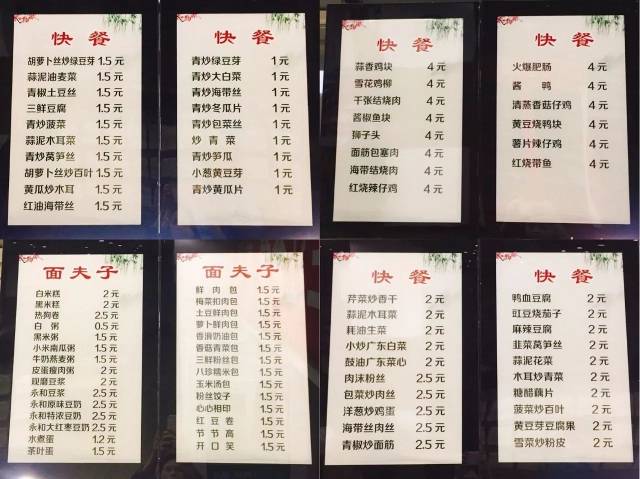 快餐
胡萝卜丝炒绿豆芽 1.5 元
蒜泥油麦菜 1.5 元
青椒土豆丝 1.5 元
三鲜豆腐 1.5 元
青炒菠菜 1.5 元
蒜泥木耳菜 1.5 元
青炒莴笋丝 1.5 元
胡萝卜丝炒百叶 1.5 元
黄瓜炒木耳 1.5 元
红油海带丝 1.5 元
快餐
青炒绿豆芽 1 元
青炒大白菜 1 元
青炒海带丝 1 元
青炒冬瓜片 1 元
青炒包菜丝 1 元
炒青菜 1 元
青炒笋瓜 1 元
小葱黄豆芽 1 元
青炒黄瓜片 1 元
快餐
蒜香鸡块 4 元
雪花鸡柳 4 元
千张结烧肉 4 元
酱椒鱼块 4 元
狮子头 4 元
面筋包塞肉 4 元
海带结烧肉 4 元
红烧辣仔鸡 4 元
快餐
火爆肥肠 4 元
酱鸭 4 元
清蒸香菇仔鸡 4 元
黄豆烧鸭块 4 元
薯片辣仔鸡 4 元
红烧带鱼 4 元
面夫子
白米糕 2 元
黑米糕 2 元
热狗卷 2.5 元
白粥 0.5 元
黑米粥 1.5 元
小米南瓜粥 1.5 元
牛奶燕麦粥 1.5 元
皮蛋瘦肉粥 2 元
现磨豆浆 2 元
永和豆浆 2.5 元
永和原味豆奶 2.5 元
永和特浓豆奶 2.5 元
永和大红枣豆奶 2.5 元
水煮蛋 1.2 元
茶叶蛋 1.5 元
面夫子
鲜肉包 1.5 元
梅菜扣肉包 1.5 元
土豆鲜肉包 1.5 元
萝卜鲜肉包 1.5 元
香滑奶油包 1.5 元
香菇青菜包 1.5 元
三鲜粉丝包 1.5 元
八珍糯米包 1.5 元
玉米汤包 1.5 元
粉丝饺子 1.5 元
心心相印 1.5 元
红豆卷 1.5 元
节节高 1.5 元
开口笑 1.5 元
快餐
芹菜炒香干 2 元
蒜泥木耳菜 2 元
耗油生菜 2 元
小炒广东白菜 2 元
鼓油广东菜心 2 元
肉沫粉丝 2.5 元
包菜炒肉丝 2.5 元
洋葱炒鸡蛋 2.5 元
海带丝肉丝 2.5 元
青椒炒面筋 2.5 元
快餐
鸭血豆腐 2 元
豇豆烧茄子 2 元
麻辣豆腐 2 元
韭菜莴笋丝 2 元
蒜泥花菜 2 元
木耳炒青菜 2 元
糖醋藕片 2 元
菠菜炒百叶 2 元
黄豆芽豆腐果 2 元
雪菜炒粉皮 2 元